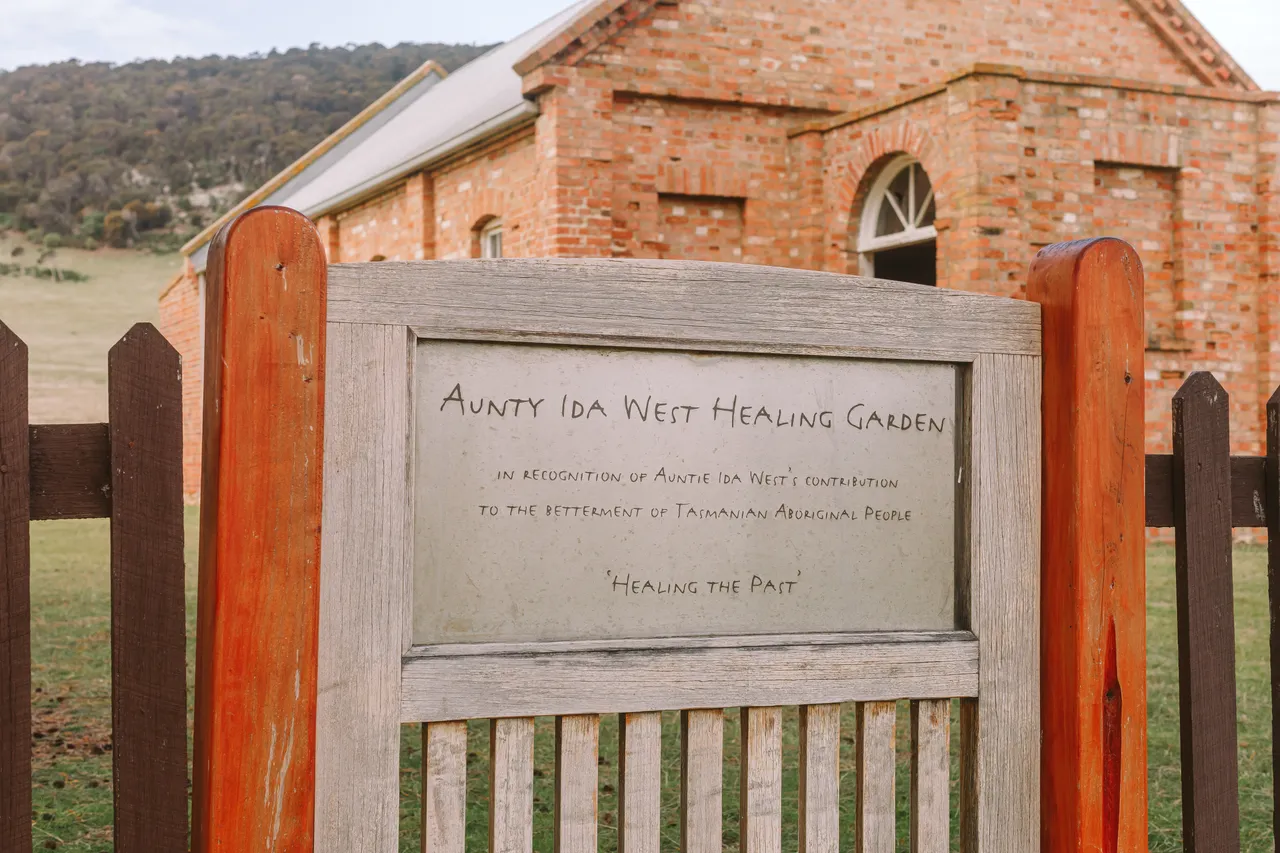 Aunty Ida West Healing Garden
in recognition of Auntie Ida West's contribution
to the betterment of Tasmanian Aboriginal People
'Healing the Past'